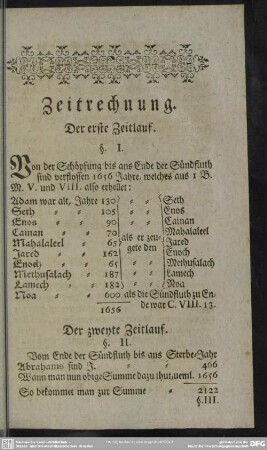 Zeitrechnung.
Der erste Zeitlauf.
§. I.
Von der Schöpfung bis ans Ende der Sündfluth
sind verflossen 1656 Jahre, welches aus 1 B.
M. V. und VIII. also erhellet:
Adam war alt, Jahre 130 Seth
Seth „ „ 105 Enos
Enos „ „ 90 Cainan
Cainan „ „ 70 Mahalaleel
Mahalaleel „ 65 als er zeu- Jared
Jared „ „ 162 gete den Enoch
Enoch „ „ 65 Methusalach
Methusalach „ 187 Lamech
Lamech „ „ 182 Noa
Noa „ „ 600 als die Sündfluth zu En-
de war C. VIII. 13.
1656
Der zweyte Zeitlauf.
§. II.
Vom Ende der Sündfluth bis ans Sterbe-Jahr
Abrahams sind J. „ „ 466
Wann man nun obige Summe dazu thut, neml. 1656
So bekommet man zur Summe „ 2122
§. III.